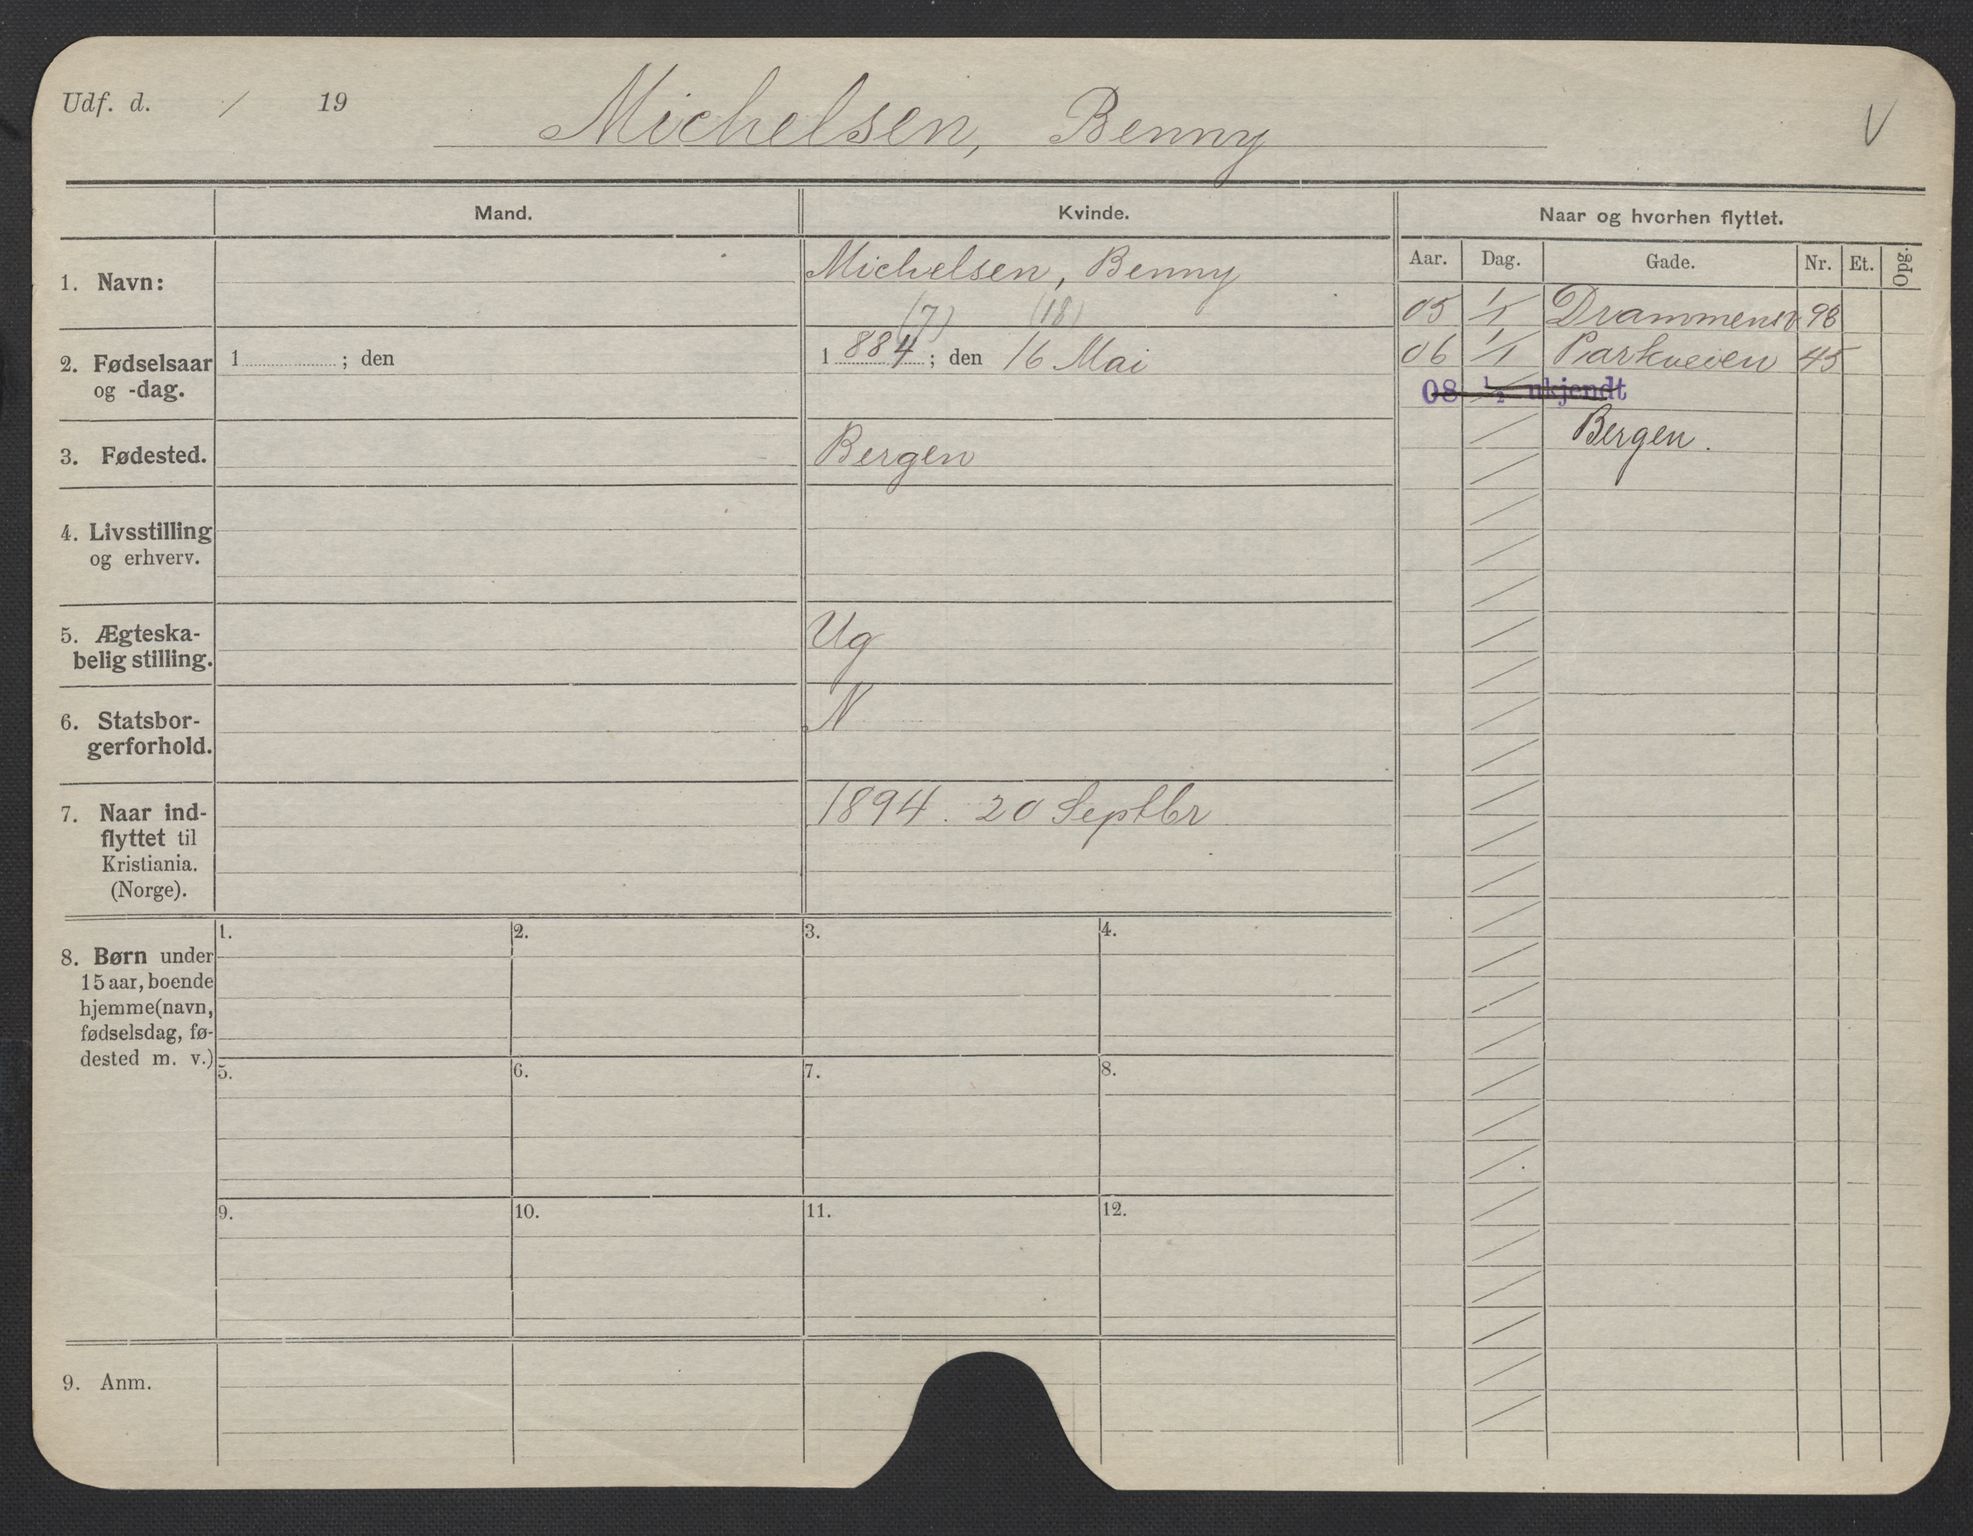 Udf. d. / 19
Michelsen, Benny
V
Mand.
Kvinde.
Naar og hvorhen flyttet.
Aar. Dag. Gade. Nr. Et. Opg.
1. Navn:
Michelsen, Benny
(7) (18)
2. Fødselsaar
og -dag.
1 ; den
1 884 ; den 16 Mai
3. Fødested.
Bergen
4. Livsstilling
og erhverv.
5. Ægteska-
belig stilling.
Ug
6. Statsbor-
gerforhold.
N
7. Naar ind-
flyttet til
Kristiania.
(Norge).
1894. 20 Septbr
8. Børn under
15 aar, boende
hjemme (navn,
fødselsdag, fø-
dested m. v.)
1. 2. 3. 4.
5. 6. 7. 8.
9. 10. 11. 12.
9. Anm.
05 1/1 Drammensv. 98
06 1/1 Parkveien 45
08 1/2 ukjendt
Bergen.